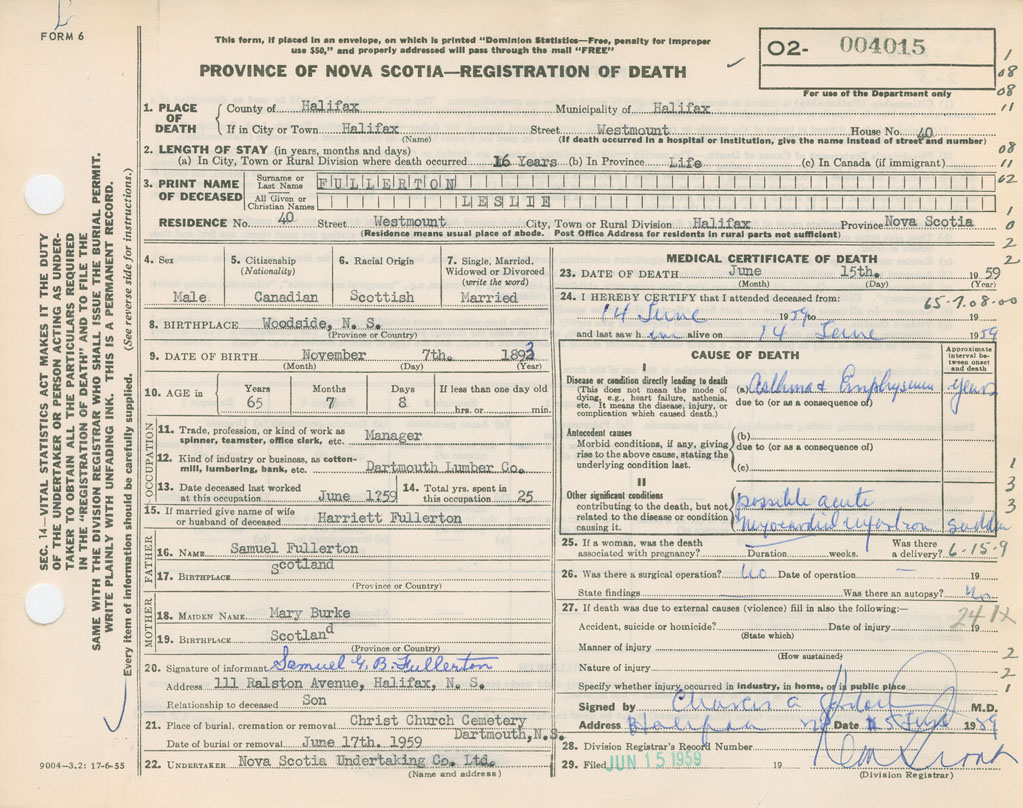 FORM 6
This form, if placed in an envelope, on which is printed "Dominion Statistics—Free, penalty for improper
use $50," and properly addressed will pass through the mail "FREE"
PROVINCE OF NOVA SCOTIA—REGISTRATION OF DEATH
O2- 004015
For use of the Department only
SEC. 14—VITAL STATISTICS ACT MAKES IT THE DUTY
OF THE UNDERTAKER OR PERSON ACTING AS UNDER-
TAKER TO OBTAIN ALL THE PARTICULARS REQUIRED
IN THE "REGISTRATION OF DEATH" AND TO FILE THE
SAME WITH THE DIVISION REGISTRAR WHO SHALL ISSUE THE BURIAL PERMIT.
WRITE PLAINLY WITH UNFADING INK. THIS IS A PERMANENT RECORD.
Every item of information should be carefully supplied. (See reverse side for instructions.)
1. PLACE OF DEATH
County of Halifax Municipality of Halifax
If in City or Town Halifax Street Westmount House No. 40
(Name) (If death occurred in a hospital or institution, give the name instead of street and number)
2. LENGTH OF STAY (in years, months and days)
(a) In City, Town or Rural Division where death occurred 16 Years (b) In Province Life (c) In Canada (if immigrant)
3. PRINT NAME OF DECEASED
Surname or Last Name FULLERTON
All Given or Christian Names LESLIE
RESIDENCE No. 40 Street Westmount City, Town or Rural Division Halifax Province Nova Scotia
(Residence means usual place of abode. Post Office Address for residents in rural parts not sufficient)
4. Sex
Male
5. Citizenship (Nationality)
Canadian
6. Racial Origin
Scottish
7. Single, Married, Widowed or Divorced (write the word)
Married
8. BIRTHPLACE Woodside, N. S.
(Province or Country)
9. DATE OF BIRTH November 7th. 1893
(Month) (Day) (Year)
10. AGE in Years Months Days If less than one day old
65 7 8 hrs. or min.
OCCUPATION
11. Trade, profession, or kind of work as
spinner, teamster, office clerk, etc. Manager
12. Kind of industry or business, as cotton-
mill, lumbering, bank, etc. Dartmouth Lumber Co.
13. Date deceased last worked
at this occupation June 1?59
14. Total yrs. spent in
this occupation 25
15. If married give name of wife
or husband of deceased Harriett Fullerton
FATHER
16. NAME Samuel Fullerton
17. BIRTHPLACE Scotland
(Province or Country)
MOTHER
18. MAIDEN NAME Mary Burke
19. BIRTHPLACE Scotland
(Province or Country)
20. Signature of informant Samuel G. B. Fullerton
Address 111 Ralston Avenue, Halifax, N. S.
Relationship to deceased Son
21. Place of burial, cremation or removal Christ Church Cemetery
Dartmouth, N.S.
Date of burial or removal June 17th. 1959
22. UNDERTAKER Nova Scotia Undertaking Co. Ltd.
(Name and address)
9004-3.2: 17-6-55
MEDICAL CERTIFICATE OF DEATH
23. DATE OF DEATH June 15th. 1959
(Month) (Day) (Year)
24. I HEREBY CERTIFY that I attended deceased from: 65-7.08-00
14 June 1959 to 19
and last saw him alive on 14 June 1959
CAUSE OF DEATH
Approximate interval between onset and death
I
Disease or condition directly leading to death
(This does not mean the mode of
dying, e.g., heart failure, asthenia,
etc. It means the disease, injury, or
complication which caused death.)
(a) Asthma & Emphysema years
due to (or as a consequence of)
Antecedent causes
Morbid conditions, if any, giving
rise to the above cause, stating the
underlying condition last.
(b)
due to (or as a consequence of)
(c)
II
Other significant conditions
contributing to the death, but not
related to the disease or condition
causing it.
possible acute
myocardial infarction sudden
25. If a woman, was the death
associated with pregnancy? Duration weeks. Was there
a delivery? 6-15-9
26. Was there a surgical operation? No Date of operation — 19
State findings Was there an autopsy? No
27. If death was due to external causes (violence) fill in also the following:—
24 1X
Accident, suicide or homicide? Date of injury 19
(State which)
Manner of injury
(How sustained)
Nature of injury
Specify whether injury occurred in industry, in home, or in public place
Signed by Charles A. Gordon M.D.
Address Halifax NS Date 15 June 1959
28. Division Registrar's Record Number
29. Filed JUN 15 1959 19
(Division Registrar)
1
08
08
11
08
11
02
1
0
2
2
1
3
3
2
2
1